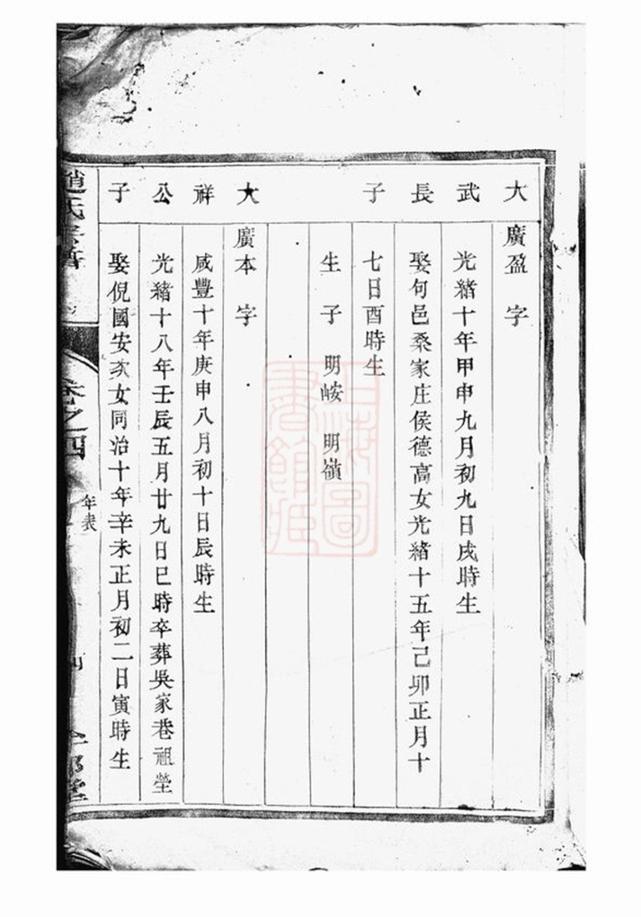 大武長子
廣盈字
光緒十年甲申九月初九日戌時生
娶句邑桑家庄侯德高女光緒十五年己卯正月十
七日酉時生
生子 明峖 明嶺
大祥公子
廣本字
咸豐十年庚申八月初十日辰時生
光緒十八年壬辰五月廿九日巳時卒葬吳家巷祖塋
娶倪國安次女同治十年辛未正月初二日寅時生
趙氏宗譜
卷之四
年表
上海圖書館藏